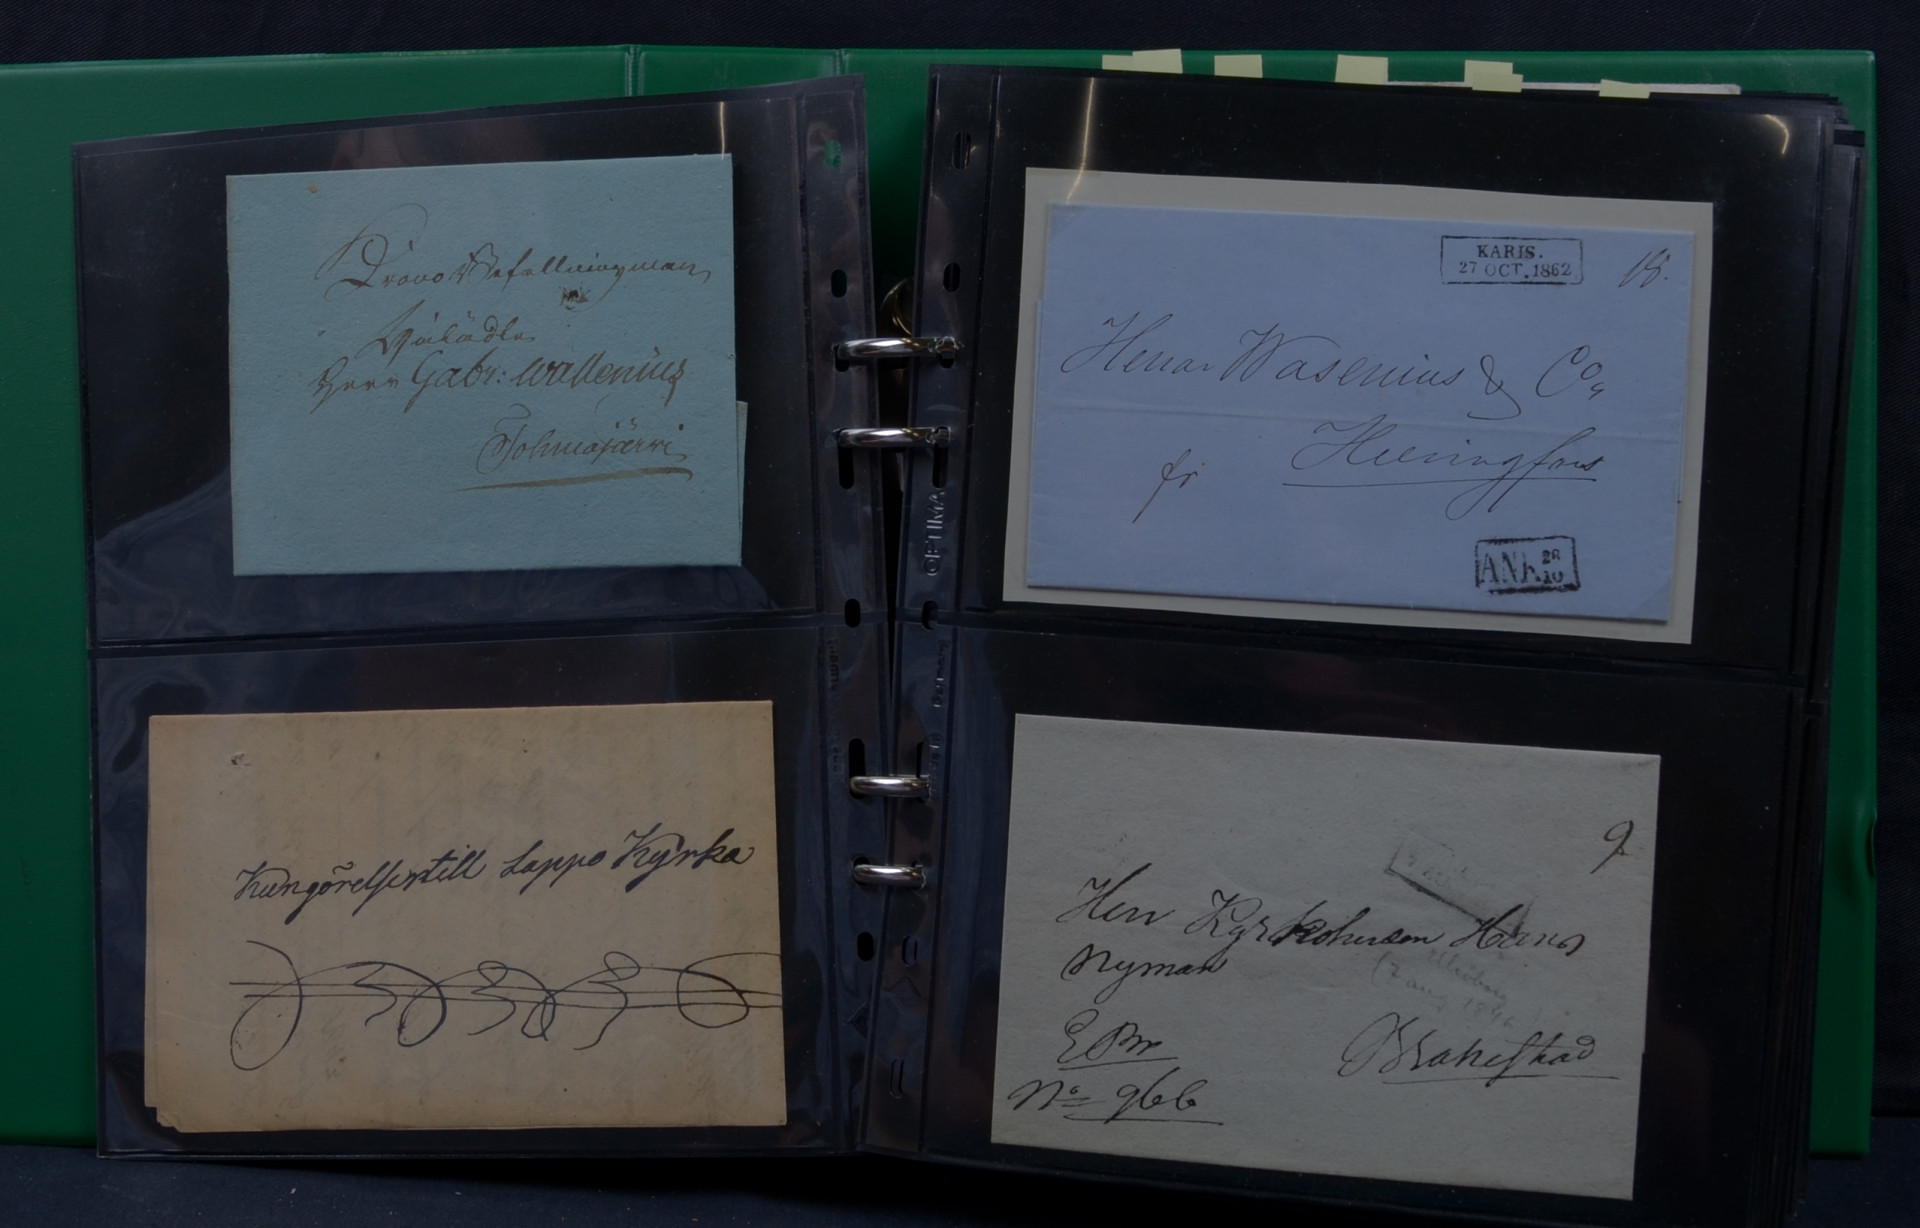 Krono Befallningsman
Wälädle
Herr Gabr: Wallenius
Tohmajärvi
KARIS.
27 OCT. 1862
18.
Herrar Wasenius & Co,
Helsingfors
fr
ANK. 28 10
Kungörelser till Lappo Kyrka
9
Herr Kyrkoherden Hans
Nyman
E Bm
Brahestad
No 966
OPTIMA